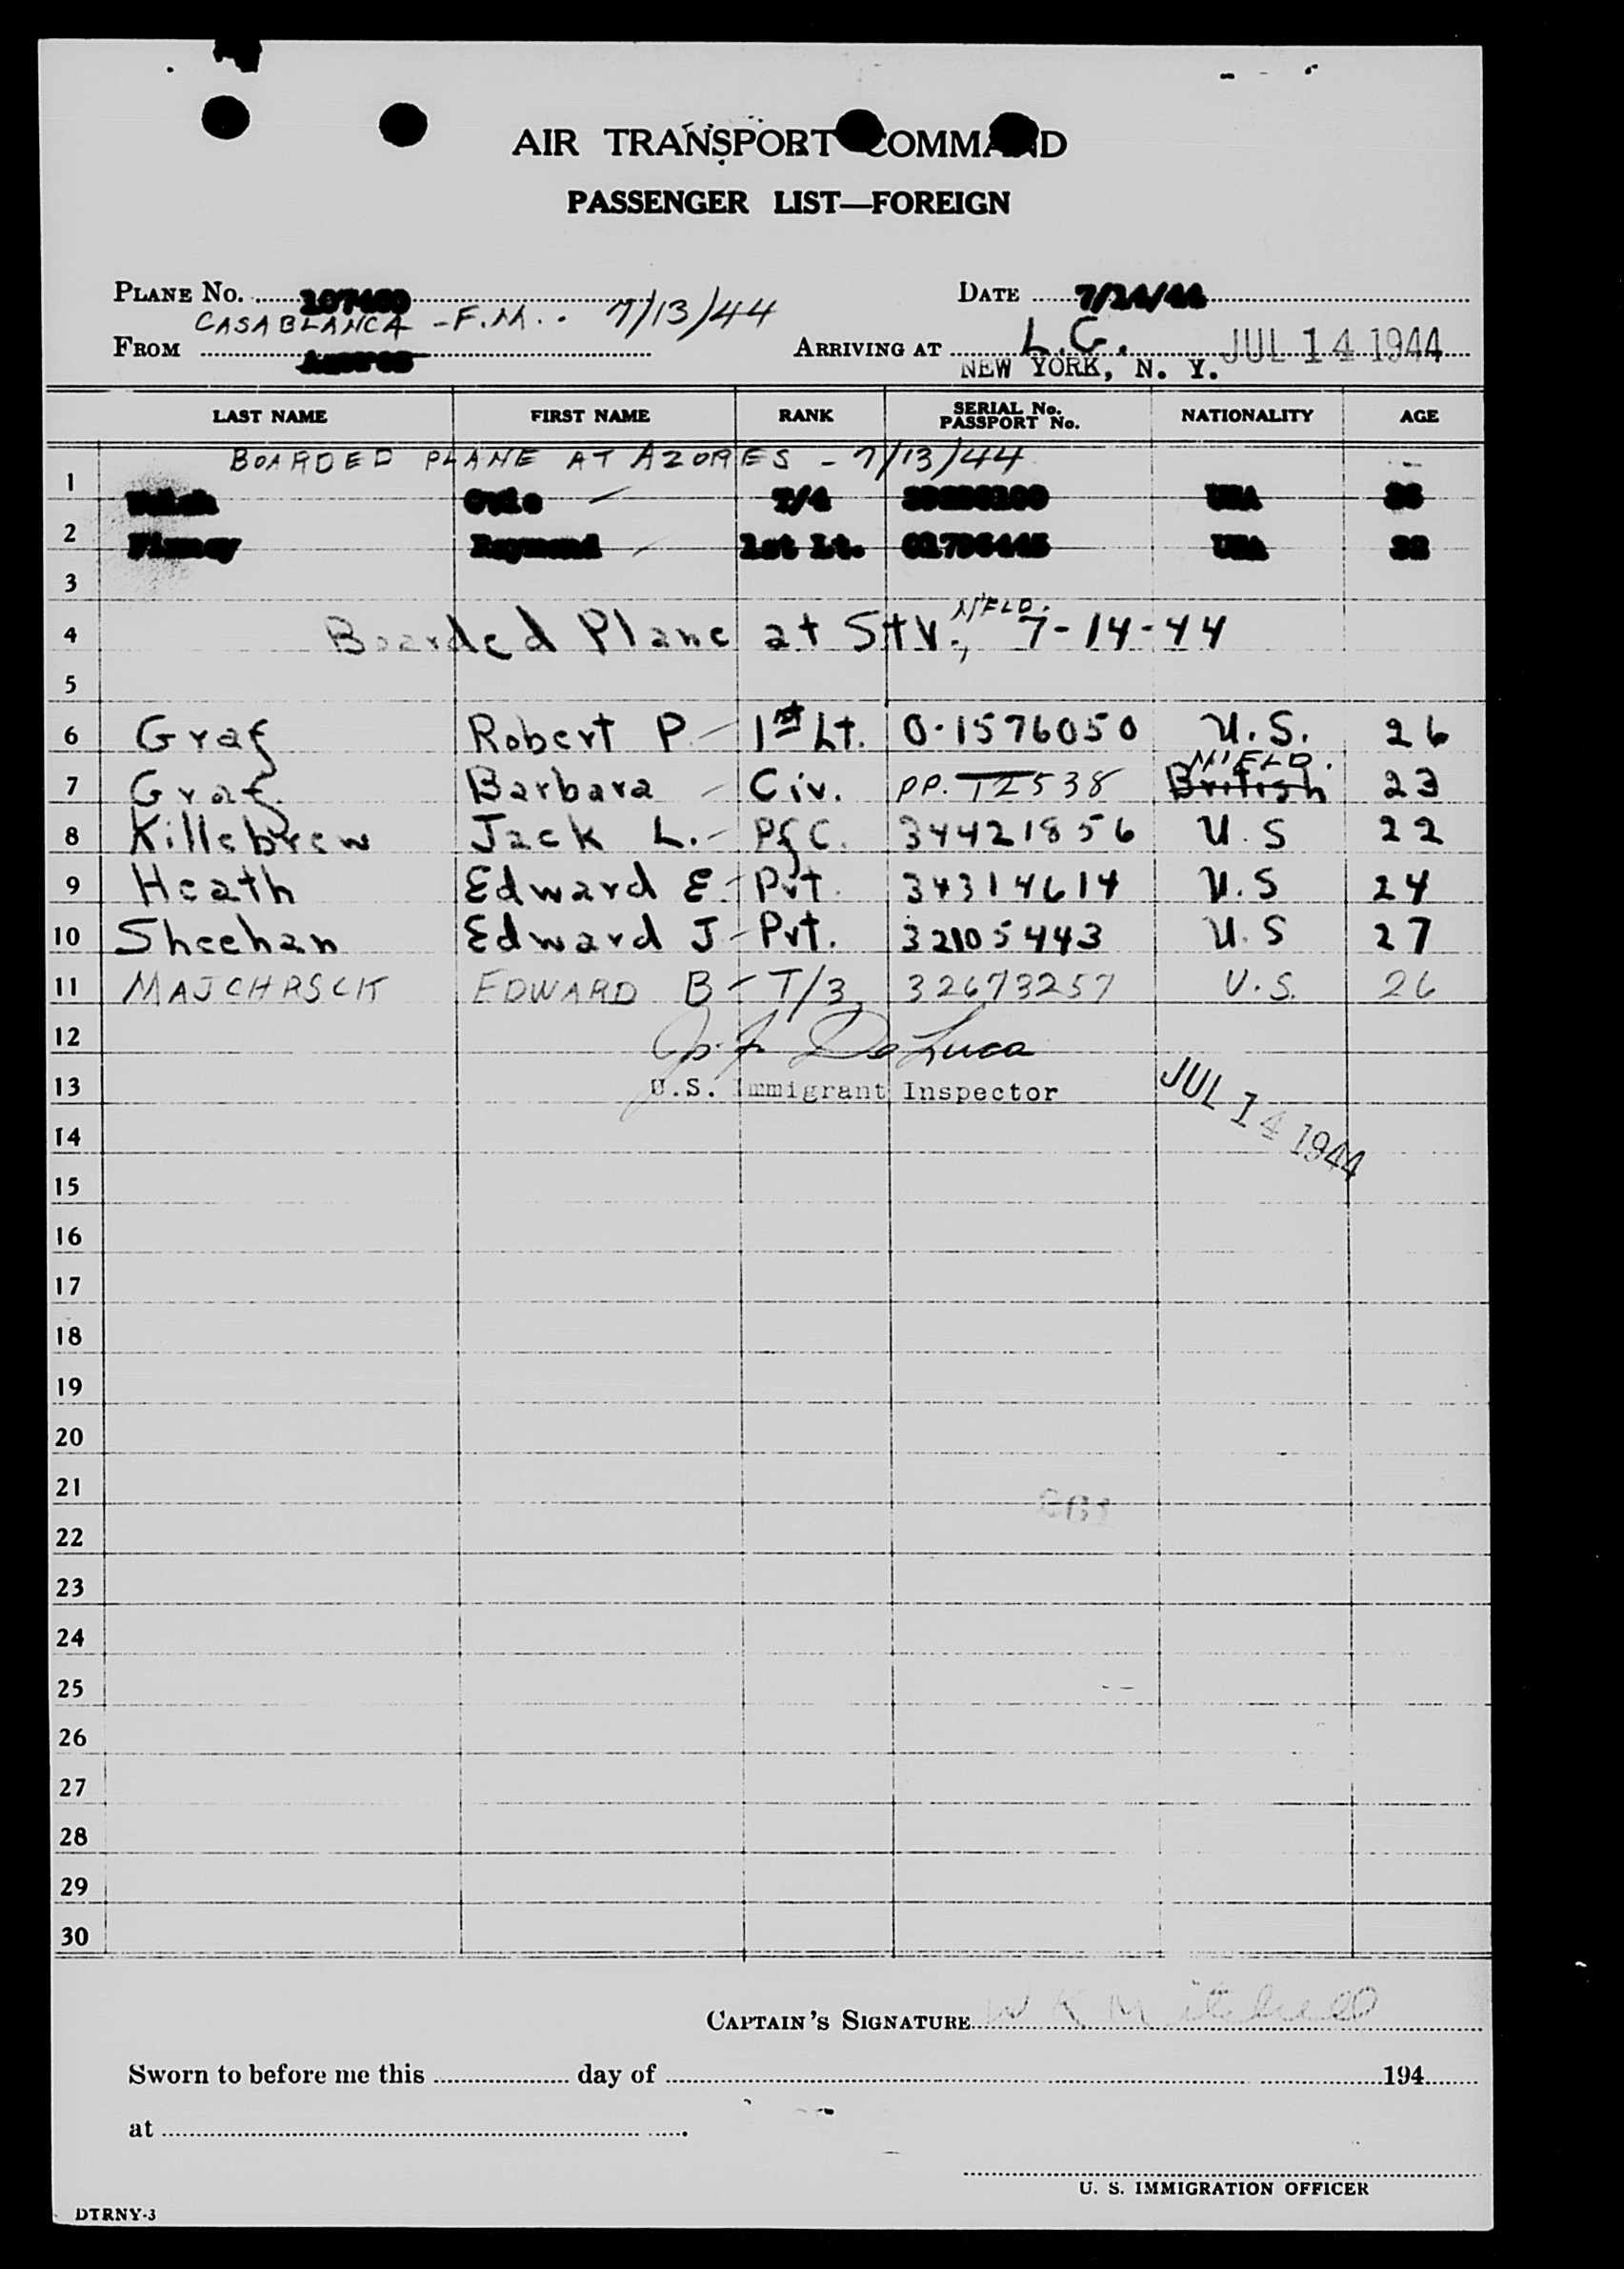 AIR TRANSPORT COMMAND
PASSENGER LIST—FOREIGN
PLANE No. DATE
CASABLANCA - F.M. . 7/13/44
FROM ARRIVING AT L.G. JUL 14 1944
NEW YORK, N. Y.
LAST NAME FIRST NAME RANK SERIAL No. PASSPORT No. NATIONALITY AGE
BOARDED PLANE AT AZORES - 7/13/44
1 T/4 USA
2 Raymond 1st Lt. USA
3
N'FLD.
4 Boarded Plane at Stv., 7-14-44
5
6 Graf Robert P. 1st Lt. O-1576050 U.S. 26
N'FLD.
7 Graf Barbara Civ. PP. 538 British 23
8 Killebrew Jack L. Pfc. 34421856 U.S 22
9 Heath Edward E. Pvt. 34314614 U.S 24
10 Sheehan Edward J Pvt. 32105443 U.S 27
11 EDWARD B T/3 32673257 U.S. 26
12 De Luca
13 U.S. Immigrant Inspector JUL 14 1944
14
15
16
17
18
19
20
21
22
23
24
25
26
27
28
29
30
CAPTAIN'S SIGNATURE W K Mitchell
Sworn to before me this day of 194
at
U. S. IMMIGRATION OFFICER
DTRNY-3